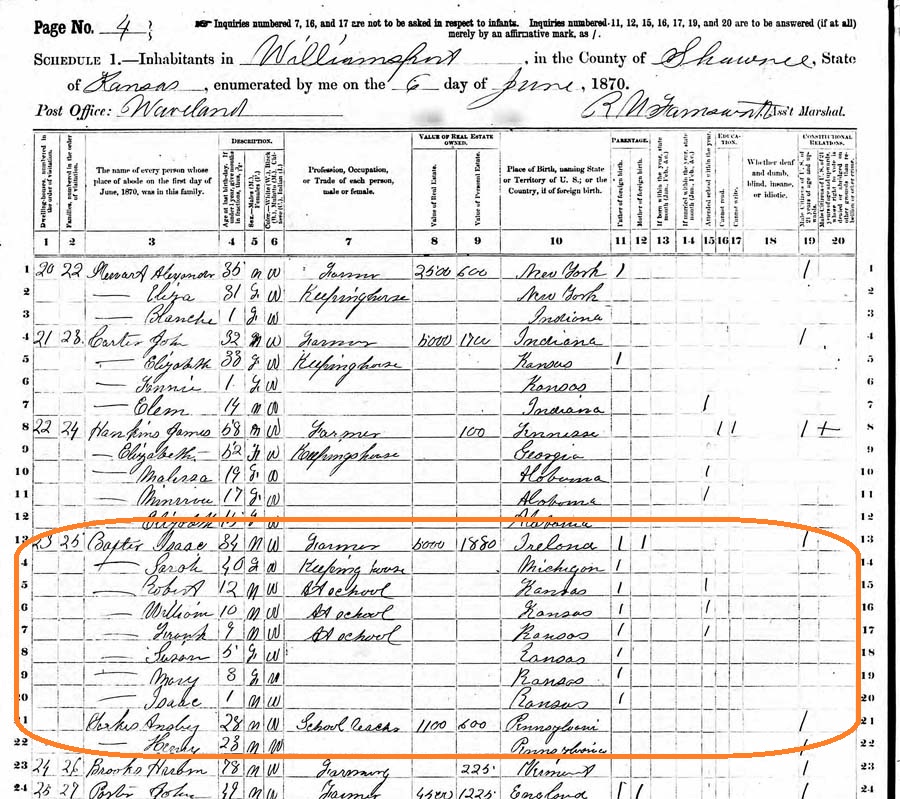 Page No. 4
☞ Inquiries numbered 7, 16, and 17 are not to be asked in respect to infants. Inquiries numbered 11, 12, 15, 16, 17, 19, and 20 are to be answered (if at all)
merely by an affirmative mark, as /.
SCHEDULE 1.—Inhabitants in Williamsport, in the County of Shawnee, State
of Kansas, enumerated by me on the 6 day of June, 1870.
Post Office: Waveland
Ass't Marshal.
DESCRIPTION. VALUE OF REAL ESTATE OWNED. PARENTAGE. EDUCATION. CONSTITUTIONAL RELATIONS.
Dwelling-houses, numbered in the order of visitation. Families, numbered in the order of visitation. The name of every person whose place of abode on the first day of June, 1870, was in this family. Profession, Occupation, or Trade of each person, male or female. Value of Real Estate. Value of Personal Estate. Place of Birth, naming State or Territory of U. S.; or the Country, if of foreign birth. Father of foreign birth. Mother of foreign birth. Attended school within the year. Cannot read. Cannot write. Whether deaf and dumb, blind, insane, or idiotic.
1 2 3 4 5 6 7 8 9 10 11 12 13 14 15 16 17 18 19 20
1 20 22 Alexander 35 m W Farmer 2500 600 New York / / 1
2 — Eliza 31 f W Keeping house New York 2
3 — Blanche 1 f W Indiana 3
4 21 23 Carter John 32 m W Farmer 5000 1700 Indiana / 4
5 — Elizabeth 33 f W Keeping house Kansas / 5
6 — Fannie 1 f W Kansas 6
7 — Clem 14 m W Indiana / 7
8 22 24 Hankins James 58 m W Farmer 100 Tennisse / / / + 8
9 — Elizabeth 52 f W Keeping house Georgia 9
10 — Malissa 19 f W Alabama / 10
11 — Minervia 17 f W Alabama / 11
12 Elizabeth 15 f W Alabama
13 23 25 Baxter Isaac 34 m W Farmer 5000 1880 Ireland / / / 13
14 — Sarah 40 f W Keeping house Michigan / 14
15 — Robert 12 m W At school Kansas / / 15
16 — William 10 m W At school Kansas / / 16
17 — Frank 9 m W At school Kansas / / 17
18 — Susan 5 f W Kansas / 18
19 — Mary 3 f W Kansas / 19
20 — Isaac 1 m W Kansas / 20
21 28 m W School Teacher 1100 600 Pennsylvani / 21
22 — Henry 23 m W Pennsylvania / 22
23 24 26 Brooks 78 m W Farming 225 Vermont / 23
24 25 27 Porter John 49 m W Farmer 4500 1225 England / / / 24